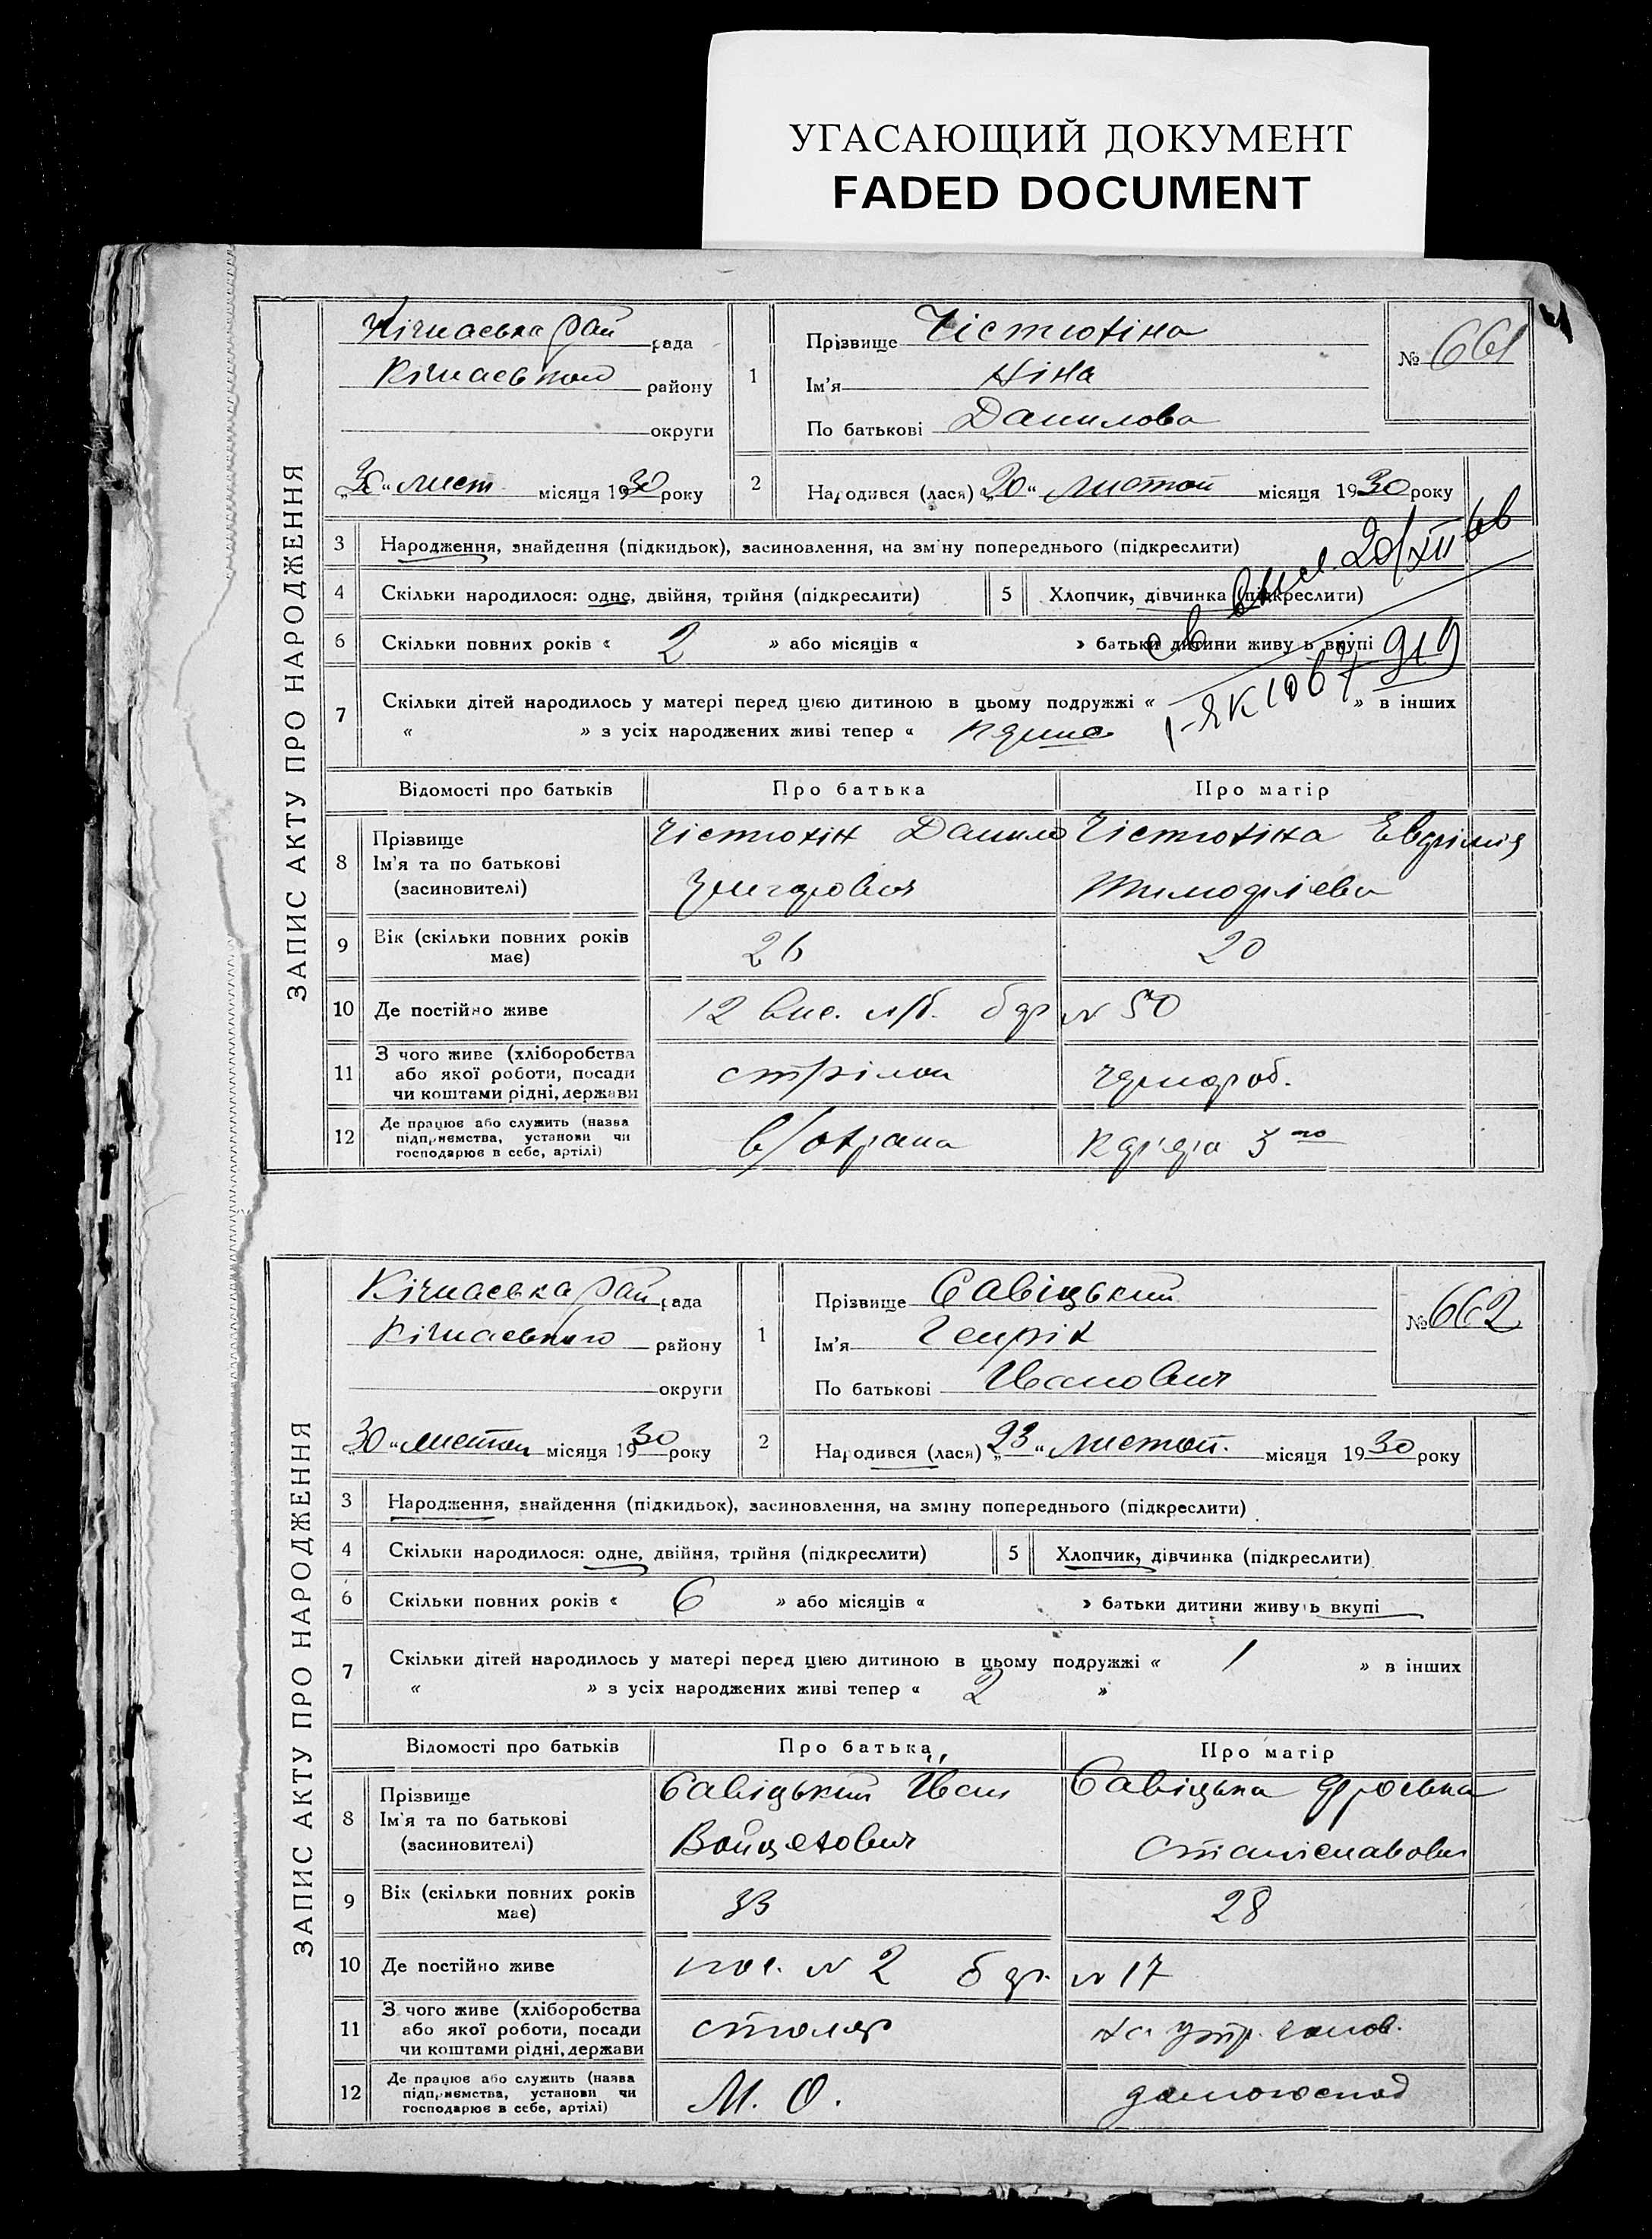 УГАСАЮЩИЙ ДОКУМЕНТ
FADED DOCUMENT
ЗАПИС АКТУ ПРО НАРОДЖЕННЯ
Кічкаська рай рада
Кічкаського району
округи
„30“ лист місяця 1930 року
1
Прізвище Чістюхіна
Ім'я Ніна
По батькові Данилова
№ 661
2
Народився (лася) „20“ листоп місяця 1930 року
3 Народження, знайдення (підкидьок), засиновлення, на зміну попереднього (підкреслити)
4 Скільки народилося: одне, двійня, трійня (підкреслити)
5 Хлопчик, дівчинка (підкреслити)
св. выд. 20/XII 66
6 Скільки повних років « 2 » або місяців « » батьки дитини живуть вкупі
919
I-ЯК 1067
7 Скільки дітей народилось у матері перед цією дитиною в цьому подружжі « » в інших
« » з усіх народжених живі тепер «
Відомості про батьків
Про батька
Про матір
8 Прізвище
Ім'я та по батькові
(засиновителі)
Чістюхін Данило
Чістюхіна Евдрімія
Тимофіева
9 Вік (скільки повних років має)
26
20
10 Де постійно живе
12 вис. л/б. б др № 50
11 З чого живе (хліборобства
або якої роботи, посади
чи коштами рідні, держави
стрілок
чорнороб.
12 Де працює або служить (назва
підприємства, установи чи
господарює в себе, артілі)
в/охрана
ЗАПИС АКТУ ПРО НАРОДЖЕННЯ
Кічкаська рай рада
Кічкаського району
округи
„30“ листоп місяця 1930 року
1
Прізвище Савіцький
Ім'я Генріх
По батькові Іванович
№ 662
2
Народився (лася) „23“ листоп. місяця 1930 року
3 Народження, знайдення (підкидьок), засиновлення, на зміну попереднього (підкреслити)
4 Скільки народилося: одне, двійня, трійня (підкреслити)
5 Хлопчик, дівчинка (підкреслити)
6 Скільки повних років « 6 » або місяців « » батьки дитини живуть вкупі
7 Скільки дітей народилось у матері перед цією дитиною в цьому подружжі « 1 » в інших
« » з усіх народжених живі тепер « 2 »
Відомості про батьків
Про батька
Про матір
8 Прізвище
Ім'я та по батькові
(засиновителі)
Савіцький Іван
Войцехович
Савіцька
Станіславовн
9 Вік (скільки повних років має)
33
28
10 Де постійно живе
пос. № 2 б др. № 17
11 З чого живе (хліборобства
або якої роботи, посади
чи коштами рідні, держави
столяр
на утр. чолов.
12 Де працює або служить (назва
підприємства, установи чи
господарює в себе, артілі)
М. О.
домогоспод